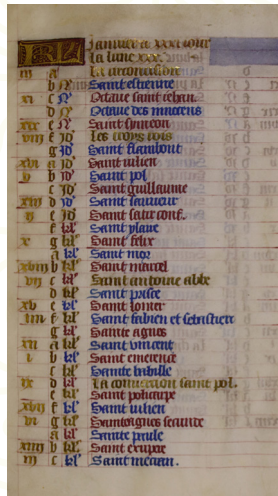 KL Januier a xxxi iour
la lune xxx.
iii a la circoncision
b N Saint estienne
xi c N Octaue saint iehan
d N Octaue des innocens
xix e N Saint symeon
viii f Id Les troys rois
g Id Saint
xvi a Id Saint iulien
v b Id Saint pol
c Id Saint guillaume
xiii d Id Saint sauueur
ii e Id Saint satir conf.
f kl Saint ylaire
x g kl Saint felix
a kl Saint mor
xviii b kl Saint marcel
vii c kl Saint antoine abbe
d kl Saint prisce
xv e kl Saint lomer
iiii f kl Saint fabien et sebastien
g kl Sainte agnes
xii a kl Saint vincent
i b kl Saint
c kl Sainte
ix d kl La conuersion saint pol.
e kl Saint policarpe
xvii f kl Saint iulien
vi g kl Saint agnes
a kl Sainte paule
xiiii b kl Saint
iii c kl Saint